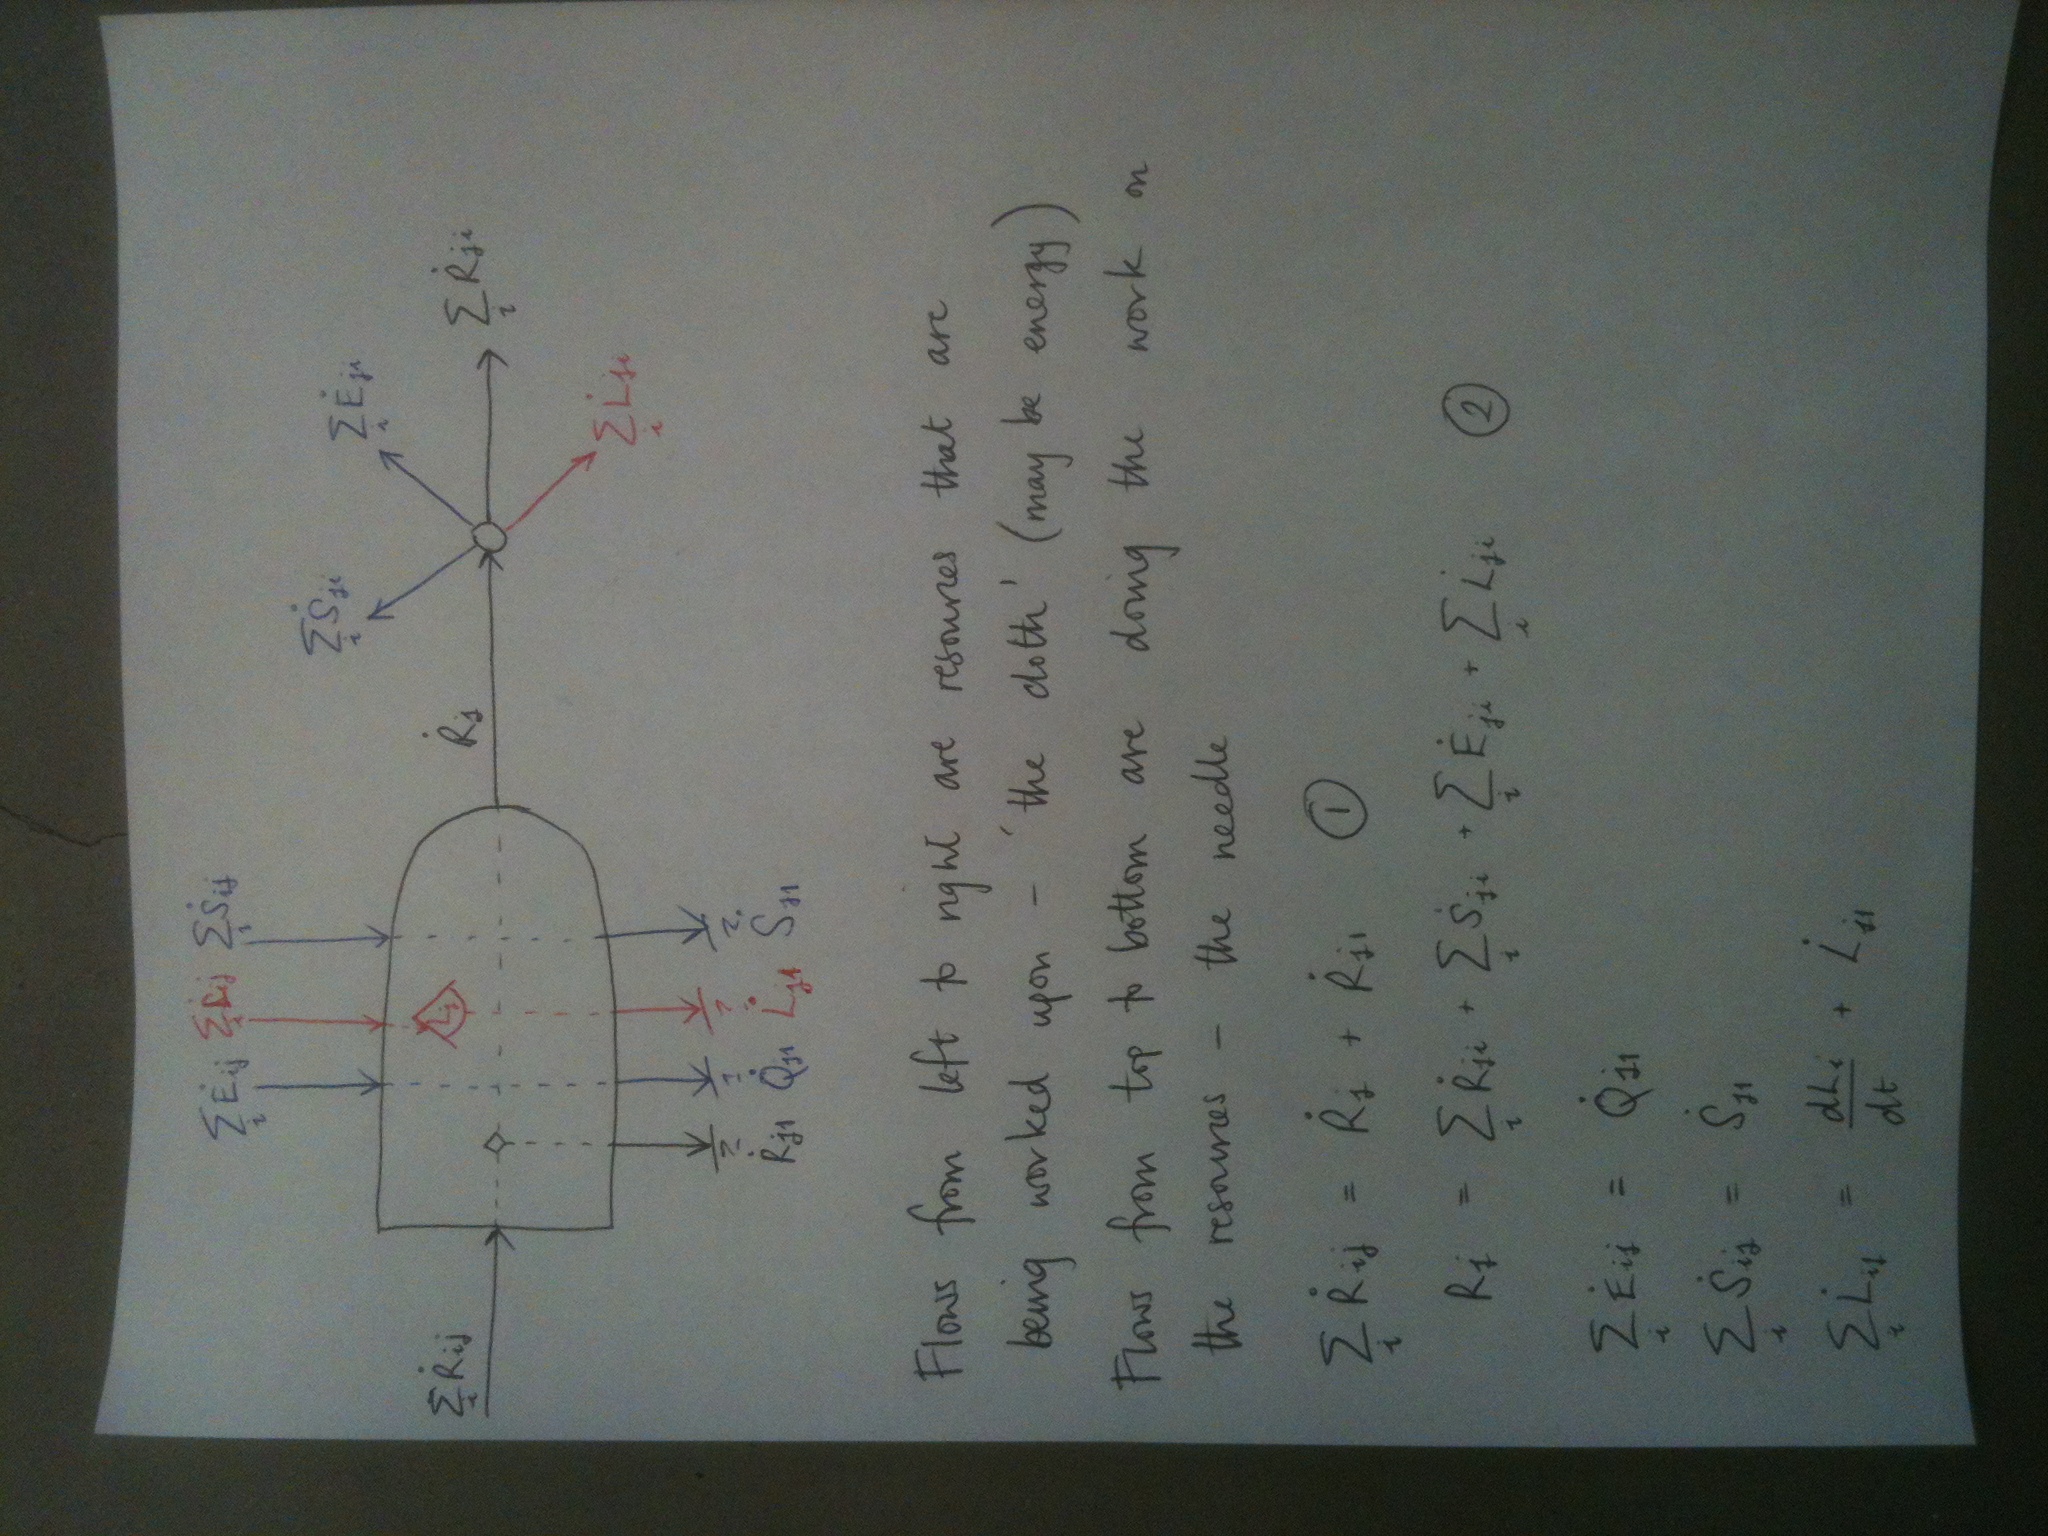 Σᵢ Ėij Σᵢ L̇ij Σᵢ Ṡij
Σᵢ Ṙij
Lj
Ṙj
Σᵢ Ṡji
Σᵢ Ėji
Σᵢ Ṙji
Σᵢ L̇ji
Ṙj1 Q̇j1 L̇j1 Ṡj1
Flows from left to right are resources that are
being worked upon – 'the cloth' (may be energy)
Flows from top to bottom are doing the work on
the resources – the needle
Σᵢ Ṙij = Ṙj + Ṙj1 ①
Ṙj = Σᵢ Ṙji + Σᵢ Ṡji + Σᵢ Ėji + Σᵢ L̇ji ②
Σᵢ Ėij = Q̇j1
Σᵢ Ṡij = Ṡj1
Σᵢ L̇ij = dLi/dt + L̇j1